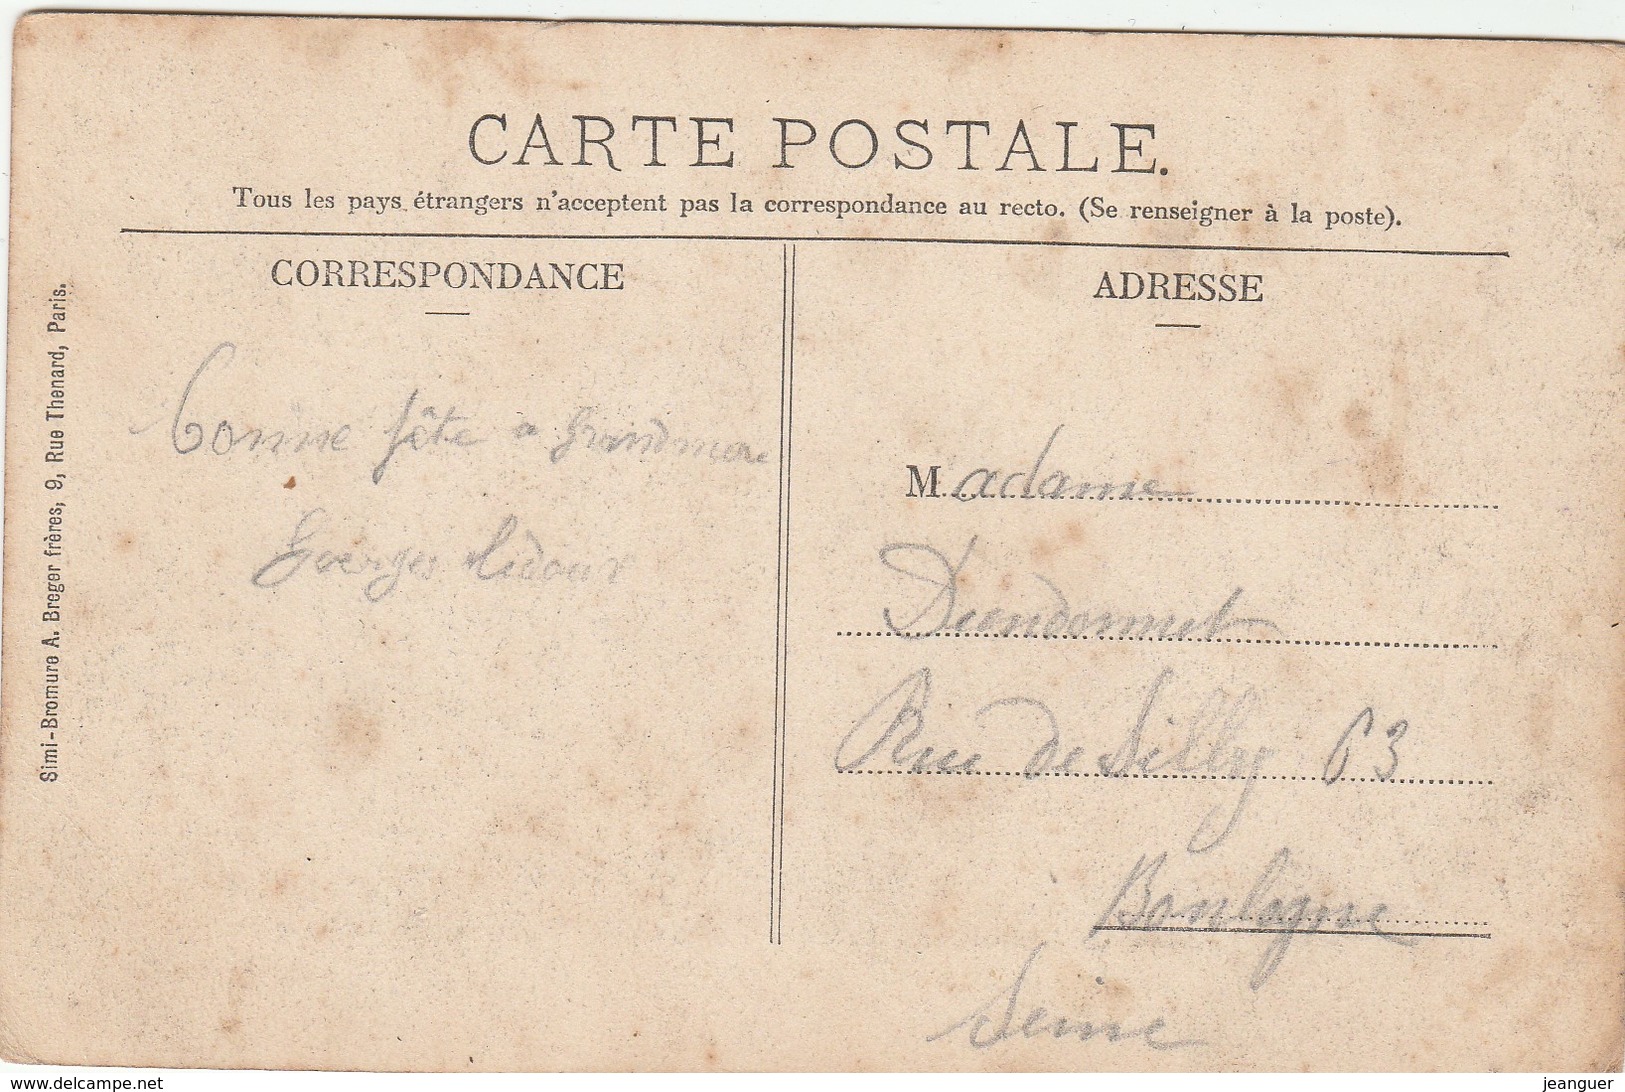 CARTE POSTALE.
Tous les pays étrangers n'acceptent pas la correspondance au recto. (Se renseigner à la poste).
CORRESPONDANCE
bonne fête a grandmere
Goerges
ADRESSE
Madame
Rue de Silly 63
Boulogne
Seine
Simi-Bromure A. Breger frères, 9, Rue Thenard, Paris.
www.delcampe.net
jeanguer